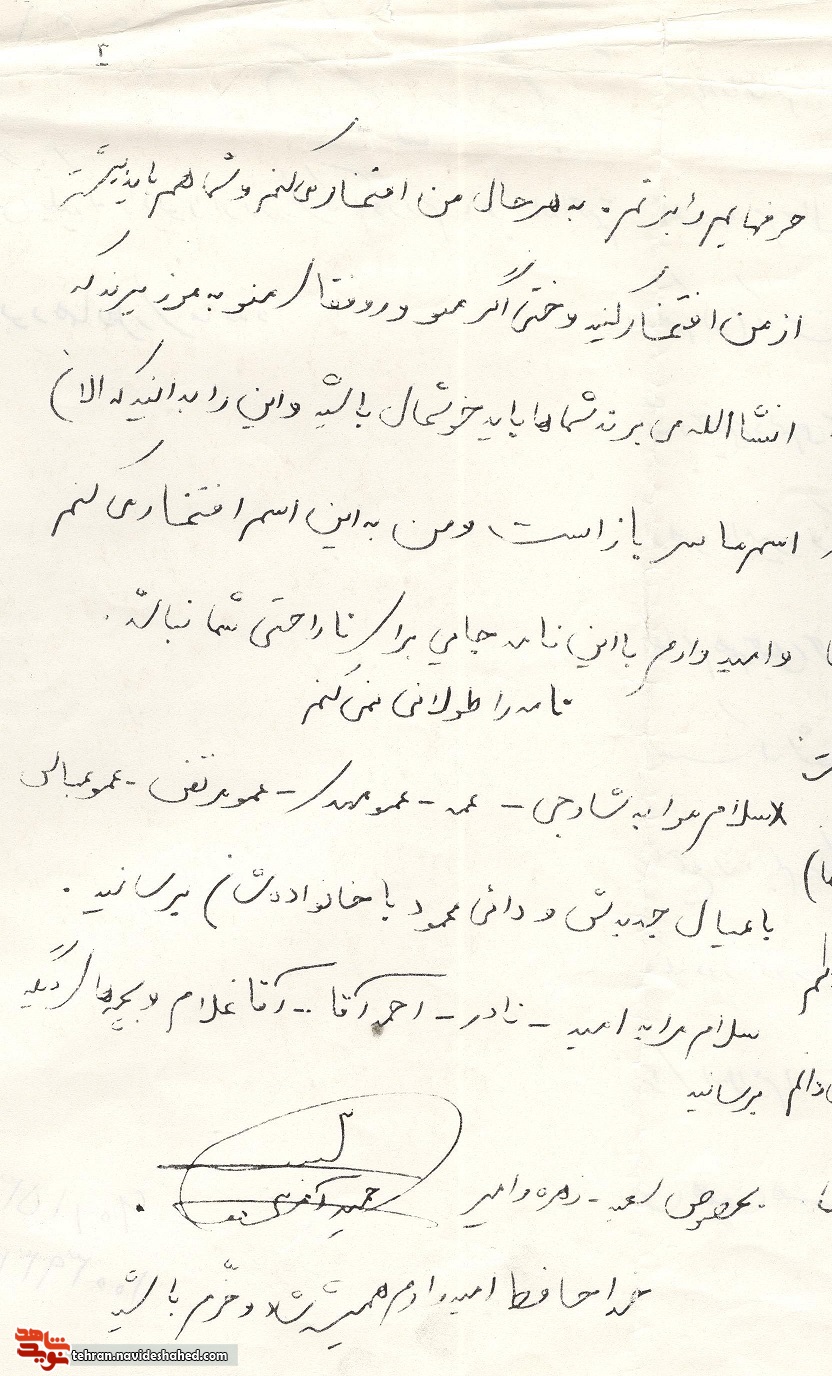 ۳
حرفهایم را بزنم. به هر حال من افتخار می کنم و شما هم باید
از من افتخار کنید و حتی اگر منو و رفقا منو به مرز میبرند که
انشاالله می برند شماها باید خوشحال باشید و این را بدانید که الان
اسم ما سرباز است و من به این اسم افتخار می کنم
و امیدوارم با این نامه جایی برای ناراحتی شما نباشد.
نامه را طولانی نمی کنم
سلام مرا به - عمه - عمو مهدی - عمو تقی - عمو عباس
با عیال جدیدش و دائی محمود با خانواده شان برسانید.
سلام مرا به امید - نادر - احمد آقا - آقا غلام و بچه های دیگه
برسانید
بخصوص سعید - زهره و امیر
حمید
خداحافظ امیدوارم همیشه شاد و خرّم باشید
شاهد
نوید
tehran.navideshahed.com